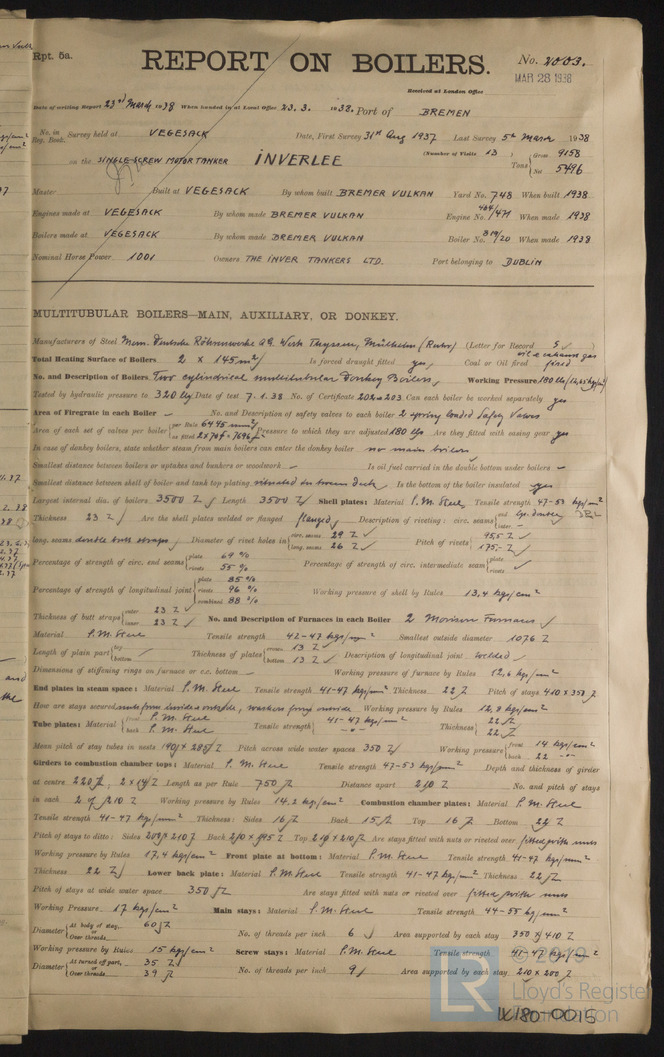 Rpt. 5a.
REPORT ON BOILERS.
No. 2003.
MAR 28 1938
Received at London Office
Date of writing Report 23rd March 1938 When handed in at Local Office 23. 3. 1938. Port of BREMEN
No. in Reg. Book. Survey held at VEGESACK Date, First Survey 31st Aug 1937 Last Survey 5th March 1938
on the SINGLE SCREW MOTOR TANKER INVERLEE (Number of Visits 13 ) Tons { Gross 9158 Net 5496
Master Built at VEGESACK By whom built BREMER VULKAN Yard No. 748 When built 1938
Engines made at VEGESACK By whom made BREMER VULKAN Engine No. 464/471 When made 1938
Boilers made at VEGESACK By whom made BREMER VULKAN Boiler No. 819/20 When made 1938
Nominal Horse Power 1001 Owners THE INVER TANKERS LTD. Port belonging to DUBLIN
MULTITUBULAR BOILERS—MAIN, AUXILIARY, OR DONKEY.
Manufacturers of Steel (Letter for Record S )
Total Heating Surface of Boilers 2 x 145 m² Is forced draught fitted yes, Coal or Oil fired oil & exhaust gas fired
No. and Description of Boilers Two cylindrical multitubular Donkey Boilers, Working Pressure 180 lbs
Tested by hydraulic pressure to 320 lbs Date of test 7. 1. 38 No. of Certificate 202 & 203 Can each boiler be worked separately yes
Area of Firegrate in each Boiler — No. and Description of safety valves to each boiler 2 spring loaded Safety Valves
Area of each set of valves per boiler { per Rule 6445 mm² as fitted Pressure to which they are adjusted 180 lbs Are they fitted with easing gear yes
In case of donkey boilers, state whether steam from main boilers can enter the donkey boiler no main boilers
Smallest distance between boilers or uptakes and bunkers or woodwork — Is oil fuel carried in the double bottom under boilers —
Smallest distance between shell of boiler and tank top plating situated in tween deck Is the bottom of the boiler insulated yes
Largest internal dia. of boilers 3500 Length 3500 Shell plates: Material S.M. Steel Tensile strength 47-53 kgs/mm²
Thickness 23 Are the shell plates welded or flanged flanged, Description of riveting: circ. seams { end lap. double inter. —
long. seams double butt straps, Diameter of rivet holes in { circ. seams 29 long. seams 26 Pitch of rivets { 95,5 175,-
Percentage of strength of circ. end seams { plate 69 % rivets 55 % Percentage of strength of circ. intermediate seam { plate rivets
Percentage of strength of longitudinal joint { plate 85 % rivets 96 % combined 88 % Working pressure of shell by Rules 13,4 kgs/cm²
Thickness of butt straps { outer 23 inner 23 No. and Description of Furnaces in each Boiler 2 Morison Furnaces
Material S.M. Steel Tensile strength 42-47 kgs/mm² Smallest outside diameter 1076
Length of plain part { top bottom Thickness of plates { crown 13 bottom 13 Description of longitudinal joint welded
Dimensions of stiffening rings on furnace or c.c. bottom — Working pressure of furnace by Rules 12,6 kgs/cm²
End plates in steam space: Material S.M. Steel Tensile strength 41-47 kgs/mm² Thickness 22 Pitch of stays 410 x 350
How are stays secured nuts from inside & outside, washers from outside Working pressure by Rules 12,8 kgs/cm²
Tube plates: Material { front S.M. Steel back S.M. Steel Tensile strength { 41-47 kgs/mm² Thickness { 22 22
Mean pitch of stay tubes in nests 190 x 285 Pitch across wide water spaces 350 Working pressure { front 14 kgs/cm² back 22
Girders to combustion chamber tops: Material S.M. Steel Tensile strength 47-53 kgs/mm² Depth and thickness of girder
at centre 220, 2 x 14 Length as per Rule 750 Distance apart 210 No. and pitch of stays
in each 2 / 210 Working pressure by Rules 14,2 kgs/cm² Combustion chamber plates: Material S.M. Steel
Tensile strength 41-47 kgs/mm² Thickness: Sides 16 Back 15 Top 16 Bottom 22
Pitch of stays to ditto: Sides 209 x 210 Back 210 x 195 Top 210 x 210 Are stays fitted with nuts or riveted over fitted with nuts
Working pressure by Rules 17,4 kgs/cm² Front plate at bottom: Material S.M. Steel Tensile strength 41-47 kgs/mm²
Thickness 22 Lower back plate: Material S.M. Steel Tensile strength 41-47 kgs/mm² Thickness 22
Pitch of stays at wide water space 350 Are stays fitted with nuts or riveted over fitted with nuts
Working Pressure 17 kgs/cm² Main stays: Material S.M. Steel Tensile strength 44-55 kgs/mm²
Diameter { At body of stay, or Over threads 60 No. of threads per inch 6 Area supported by each stay 350 x 410
Working pressure by Rules 15 kgs/cm² Screw stays: Material S.M. Steel Tensile strength 41-47 kgs/mm²
Diameter { At turned off part, 35 or Over threads 39 No. of threads per inch 9 Area supported by each stay 210 x 200
© 2019
LR Lloyd's Register Foundation
W180-0015